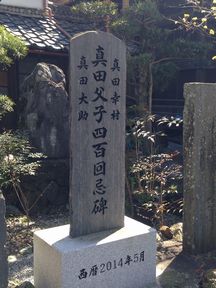 真田幸村
真田父子四百回忌碑
真田大助
西暦2014年5月